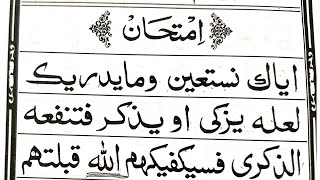 اِمتحَان
اياك نستعين ومايدريك
لعله يزكى او يذكر فتنفعه
الذكرى فسيكفيكهم الله قبلتهم